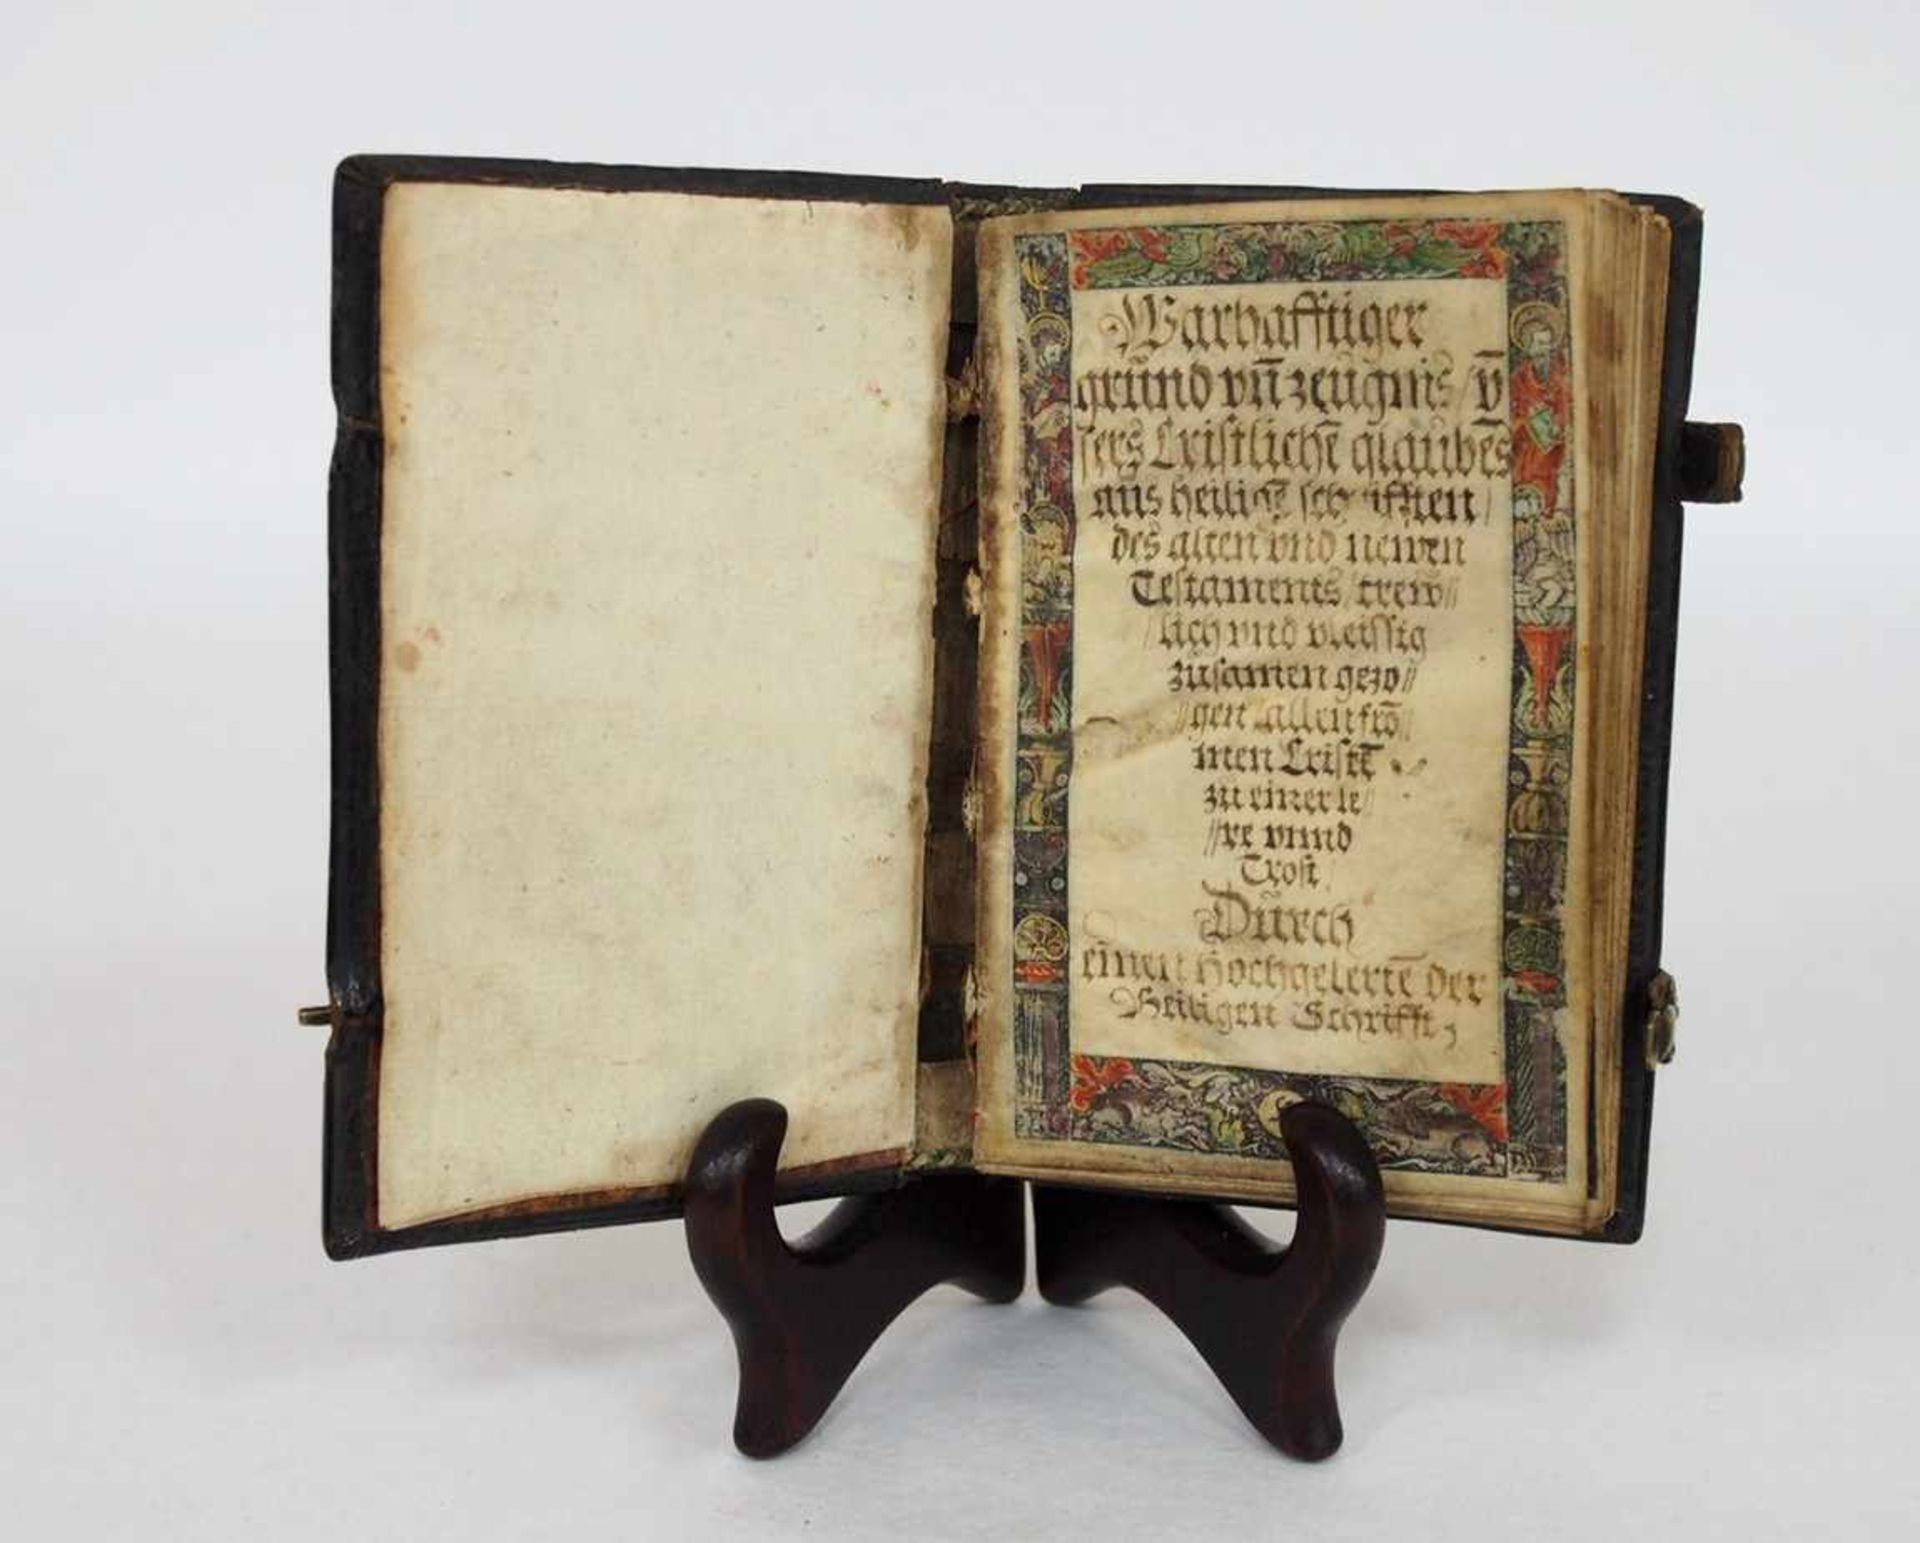 Warhafftiger
grŭnd vn̄ zeŭgnis / v̄
sers Cristlichē glaŭbēs
aŭs heiligē schrifften /
des alten vnd newen
Testaments / trew //
// lich vnd vleissig
zŭsamen gezo //
// gen / allen frō //
men Cristē
zŭ einer le //
// re vnnd
Trost /
Dŭrch
einen Hochgelertē der
Heiligen Schrifft,